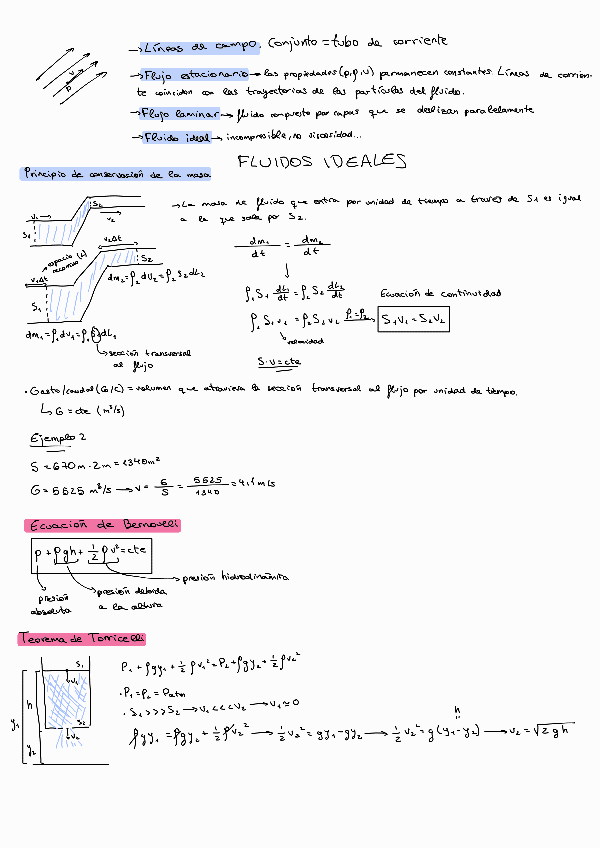 → Líneas de campo. Conjunto = tubo de corriente
v
p
→ Flujo estacionario → las propiedades (p, ρ, v) permanecen constantes. Líneas de corrien-
te coinciden con las trayectorias de las partículas del fluido.
→ Flujo laminar → fluido compuesto por capas que se deslizan paralelamente
→ Fluido ideal → incompresible, no viscosidad...
FLUIDOS IDEALES
Principio de conservación de la masa
→ La masa de fluido que entra por unidad de tiempo a través de S1 es igual
a la que sale por S2.
v1 S1 S2 v2
espacio (L) recorrido
v2Δt
v1Δt
S1 S2
dm2 = ρ2 dV2 = ρ2 S2 dL2
dm1 = ρ1 dV1 = ρ1 S1 dL1
→ sección transversal
al flujo
dm1/dt = dm2/dt
↓
ρ1 S1 dL1/dt = ρ2 S2 dL2/dt
Ecuación de continuidad
ρ1 S1 v1 = ρ2 S2 v2 ρ1=ρ2→ S1V1 = S2V2
→ velocidad
S·v = cte
· Gasto/caudal (G/C) = volumen que atraviesa la sección transversal al flujo por unidad de tiempo.
↳ G = cte (m³/s)
Ejemplo 2
S = 670 m · 2 m = 1340 m²
G = 5625 m³/s → v = G/S = 5625/1340 = 4,1 m/s
Ecuación de Bernoulli
p + ρgh + 1/2 ρv² = cte
→ presión hidrodinámica
→ presión debida
a la altura
presión
absoluta
Teorema de Torricelli
S1 v1 h y1 S2 v2 y2
P1 + ρgy1 + 1/2 ρv1² = P2 + ρgy2 + 1/2 ρv2²
· P1 = P2 = Patm
· S1 >>> S2 → v1 <<< v2 → v1 ≈ 0
h
=
ρgy1 = ρgy2 + 1/2 ρv2² → 1/2 v2² = gy1 - gy2 → 1/2 v2² = g(y1 - y2) → v2 = √2gh